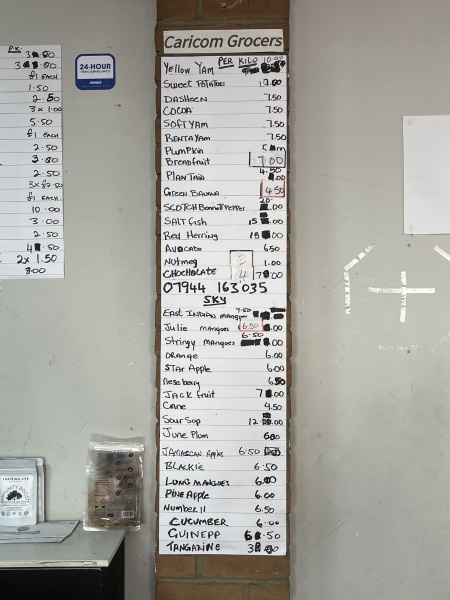 PR.
£1 EACH
1.50
2.50
3 x 1.00
5.50
£1 EACH
2.50
3.80
2.50
3x £2.50
£1 EACH
10.00
3.00
2.50
2 x 1.50
24-HOUR
Caricom Grocers
PER KILO
Yellow Yam 10.00
Sweet Potatoes
DASHEEN 7.50
COCOA 7.50
SOFT YAM 7.50
RENTA YAM 7.50
PUMPKIN
Breadfruit 7.00
PLANTAIN 4.50
GREEN BANANA 4.50
SCOTCH Bonnet Pepper 20.00
SALT fish 15.00
Red Herring 15.00
AVOCADO 6.50
Nutmeg 1.00
CHOCHOLATE
07944 163035
SKY
EAST INDIAN mangoes 7.50
Julie mangoes 6.50
Stringy mangoes 6.50
ORANGE 6.00
STAR Apple 6.00
neseberry 6.50
JACK fruit 7.00
Cane 4.50
Sour Sop 12.00
June Plum 6.00
JAMAICAN Apples 6.50
BLACKIE 6.50
LONG MANGOES 6.00
PINE Apple 6.00
Number 11 6.50
CUCUMBER 6.00
GUINEPP 6.50
TANGARINE